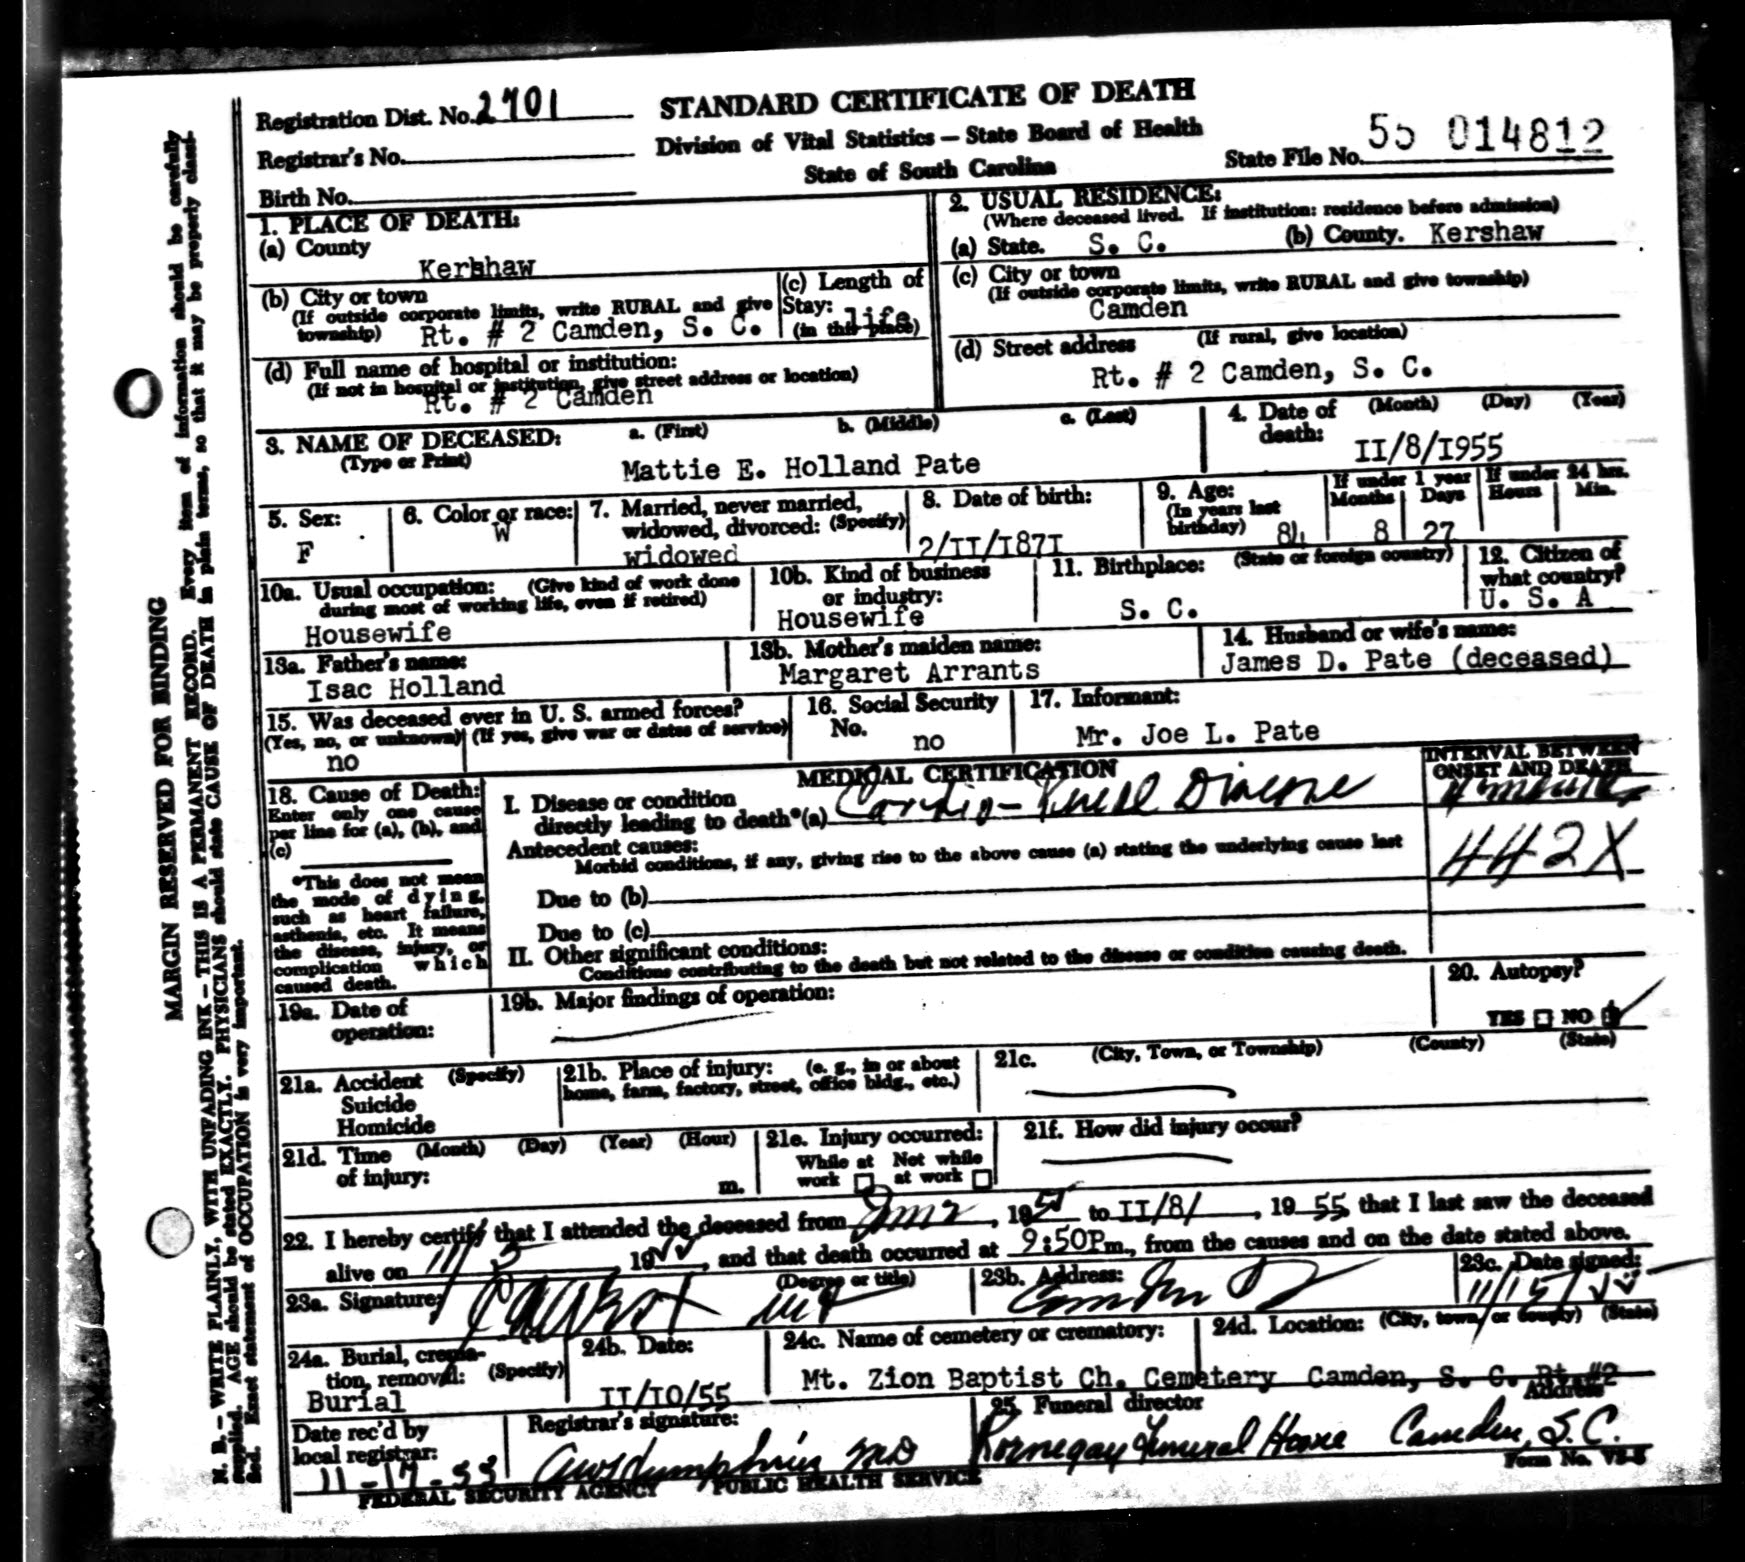 Registration Dist. No. 2701
STANDARD CERTIFICATE OF DEATH
Registrar's No.
Division of Vital Statistics — State Board of Health
State File No. 55 014812
Birth No.
State of South Carolina
1. PLACE OF DEATH:
(a) County
Kershaw
(b) City or town
(If outside corporate limits, write RURAL and give township)
Rt. # 2 Camden, S. C.
(c) Length of Stay: (in this place)
life
(d) Full name of hospital or institution:
(If not in hospital or institution, give street address or location)
Rt. # 2 Camden
2. USUAL RESIDENCE:
(Where deceased lived. If institution: residence before admission)
(a) State. S. C. (b) County. Kershaw
(c) City or town
(If outside corporate limits, write RURAL and give township)
Camden
(d) Street address (If rural, give location)
Rt. # 2 Camden, S. C.
3. NAME OF DECEASED: a. (First) b. (Middle) c. (Last)
(Type or Print)
Mattie E. Holland Pate
4. Date of death: (Month) (Day) (Year)
II/8/I955
5. Sex:
F
6. Color or race:
W
7. Married, never married, widowed, divorced: (Specify)
widowed
8. Date of birth:
2/II/I87I
9. Age: (In years last birthday) 84
If under 1 year Months 8 Days 27
If under 24 hrs. Hours Min.
10a. Usual occupation: (Give kind of work done during most of working life, even if retired)
Housewife
10b. Kind of business or industry:
Housewife
11. Birthplace: (State or foreign country)
S. C.
12. Citizen of what country?
U. S. A
13a. Father's name:
Isac Holland
13b. Mother's maiden name:
Margaret Arrants
14. Husband or wife's name:
James D. Pate (deceased)
15. Was deceased ever in U. S. armed forces?
(Yes, no, or unknown) (If yes, give war or dates of service)
no
16. Social Security No.
no
17. Informant:
Mr. Joe L. Pate
18. Cause of Death:
Enter only one cause per line for (a), (b), and (c)
*This does not mean the mode of dying, such as heart failure, asthenia, etc. It means the disease, injury, or complication which caused death.
MEDICAL CERTIFICATION
INTERVAL BETWEEN ONSET AND DEATH
I. Disease or condition directly leading to death*(a) Cardio-Renal Disease
months
442X
Antecedent causes:
Morbid conditions, if any, giving rise to the above cause (a) stating the underlying cause last
Due to (b)
Due to (c)
II. Other significant conditions:
Conditions contributing to the death but not related to the disease or condition causing death.
19a. Date of operation:
19b. Major findings of operation:
20. Autopsy?
YES NO
21a. Accident (Specify)
Suicide
Homicide
21b. Place of injury: (e. g., in or about home, farm, factory, street, office bldg., etc.)
21c. (City, Town, or Township) (County) (State)
21d. Time of injury: (Month) (Day) (Year) (Hour)
m.
21e. Injury occurred:
While at work Not while at work
21f. How did injury occur?
22. I hereby certify that I attended the deceased from , 19 to II/8/ , 19 55 that I last saw the deceased
alive on 11/5 19 55, and that death occurred at 9:50Pm., from the causes and on the date stated above.
23a. Signature: (Degree or title)
23b. Address: Camden
23c. Date signed:
11/15/55
24a. Burial, cremation, removal: (Specify)
Burial
24b. Date:
II/I0/55
24c. Name of cemetery or crematory:
Mt. Zion Baptist Ch. Cemetery
24d. Location: (City, town, or county) (State)
Camden, S. C. Rt. #2
Date rec'd by local registrar:
11-17-55
Registrar's signature:
25. Funeral director Address
Kornegay Funeral Home Camden, S.C.
FEDERAL SECURITY AGENCY PUBLIC HEALTH SERVICE
Form No. VS-5
MARGIN RESERVED FOR BINDING
N. B. — WRITE PLAINLY, WITH UNFADING INK — THIS IS A PERMANENT RECORD. Every item of information should be carefully
supplied. AGE should be stated EXACTLY. PHYSICIANS should state CAUSE OF DEATH in plain terms, so that it may be properly classi-
fied. Exact statement of OCCUPATION is very important.